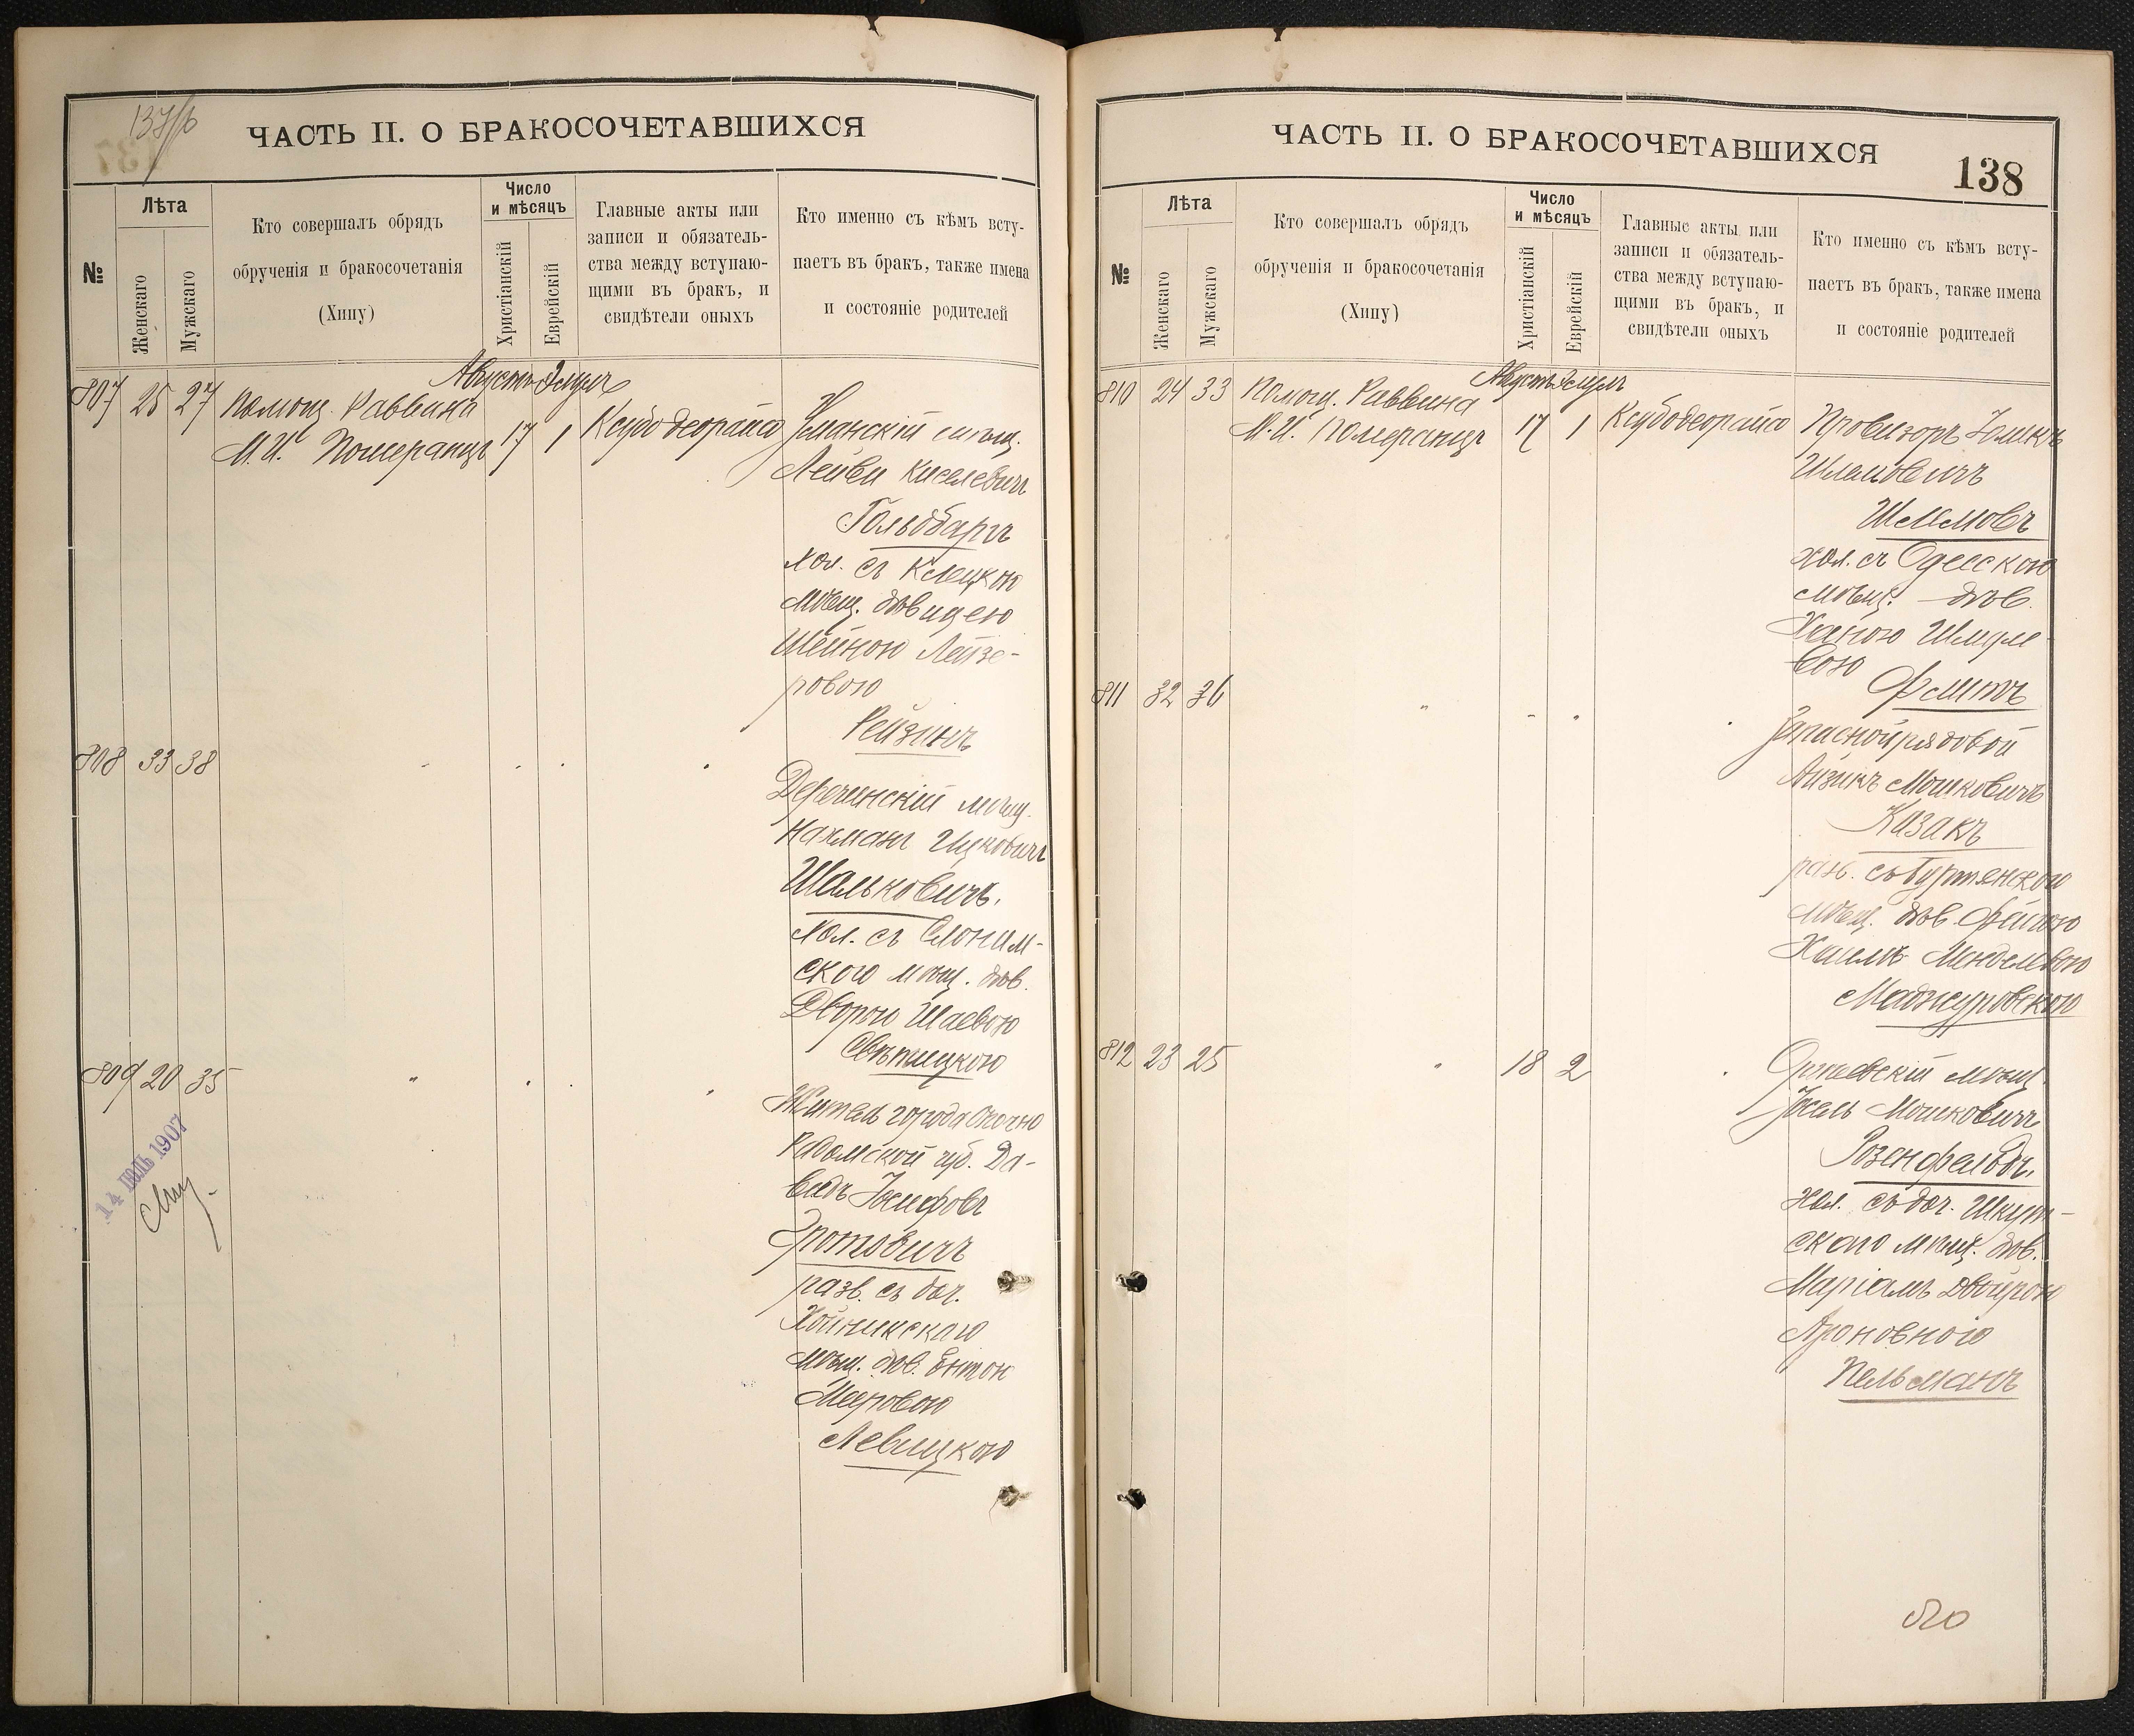 137/б
ЧАСТЬ II. О БРАКОСОЧЕТАВШИХСЯ
№
Лѣта
Женскаго
Мужскаго
Кто совершалъ обрядъ
обрученія и бракосочетанія
(Хипу)
Число
и мѣсяцъ
Христіанскій
Еврейскій
Главные акты или
записи и обязатель-
ства между вступаю-
щими въ бракъ, и
свидѣтели оныхъ
Кто именно съ кѣмъ всту-
паетъ въ бракъ, также имена
и состояніе родителей
Августъ Элулъ
807 25 27 Помощ. Раввина
М.И. Померанцъ 17 1 Ксубо деорайсо Уманскій мѣщ.
Лейви Киселевичъ
Гольдбаргъ
хол. съ Клецкою
мѣщ. дѣвицею
Шейною Лейзе-
ровою
Рейзинъ
808 33 38
Деречинскій мѣщ.
Нахманъ Ицковичъ
Шальковичъ.
хол. съ Слоним-
ского мѣщ. дѣв.
Дворою Шаевою
Свѣтицкою
809 20 35
Житель города Опочно
Радомской губ. Да-
видъ Іосифовъ
Эротовичъ
разв. съ доч.
Хойникскаго
мѣщ. дѣв. Ентою
Мееровою
Левицкою
14 ІЮЛЬ 1907
ЧАСТЬ II. О БРАКОСОЧЕТАВШИХСЯ
138
№
Лѣта
Женскаго
Мужскаго
Кто совершалъ обрядъ
обрученія и бракосочетанія
(Хипу)
Число
и мѣсяцъ
Христіанскій
Еврейскій
Главные акты или
записи и обязатель-
ства между вступаю-
щими въ бракъ, и
свидѣтели оныхъ
Кто именно съ кѣмъ всту-
паетъ въ бракъ, также имена
и состояніе родителей
Августъ Элулъ
810 24 33 Помощ. Раввина
М.И. Померанцъ 17 1 Ксубо деорайсо Провизоръ
Шлемовичъ
Шлемовъ
хол. съ Одесскою
мѣщ. дѣв.
Ханою Шмуле-
вою
811 32 36
Запасной рядовой
Айзикъ Мошковичъ
Казакъ
разв. съ
мѣщ. дѣв. Фейгою
Менделевою
Маджуровскою
812 23 25 18 2
мѣщ.
Іосель Мошковичъ
Розенфельдъ.
хол. съ доч. Шкут-
скаго мѣщ. дѣв.
Маріамъ Двойрою
Ароновною
Пельманъ